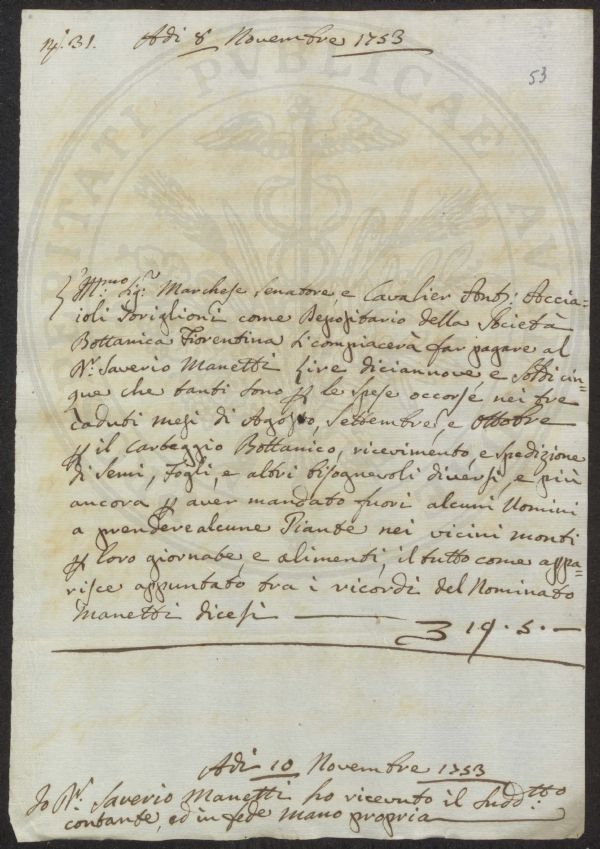 Nº. 31. Adi 8 Novembre 1753
53
Ill.mo Sig.r Marchese Senatore, e Cavalier Ant.: Accia=
ioli Toriglioni come Depositario della Società
Bottanica Fiorentina si compiacerà far pagare al
D.r Saverio Manetti Lire diciannove, e Soldi cin=
que che tanti sono p le spese occorse nei tre
caduti mesi di Agosto, Settembre, e Ottobre
p il Carteggio Bottanico, ricevimento, e spedizione
di Semi, Fogli, e altri bisognevoli diversi, e più
ancora p aver mandato fuori alcuni Uomini
a prendere alcune Piante nei vicini monti
p loro giornate, e alimenti, il tutto come appa=
risce appuntato tra i ricordi del Nominato
Manetti dicesi — 19. 5. —
Adi 10 Novembre 1753
Io D.r Saverio Manetti ho ricevuto il Sudd.tto
contante, ed in fede Mano propria
PVBLICAE